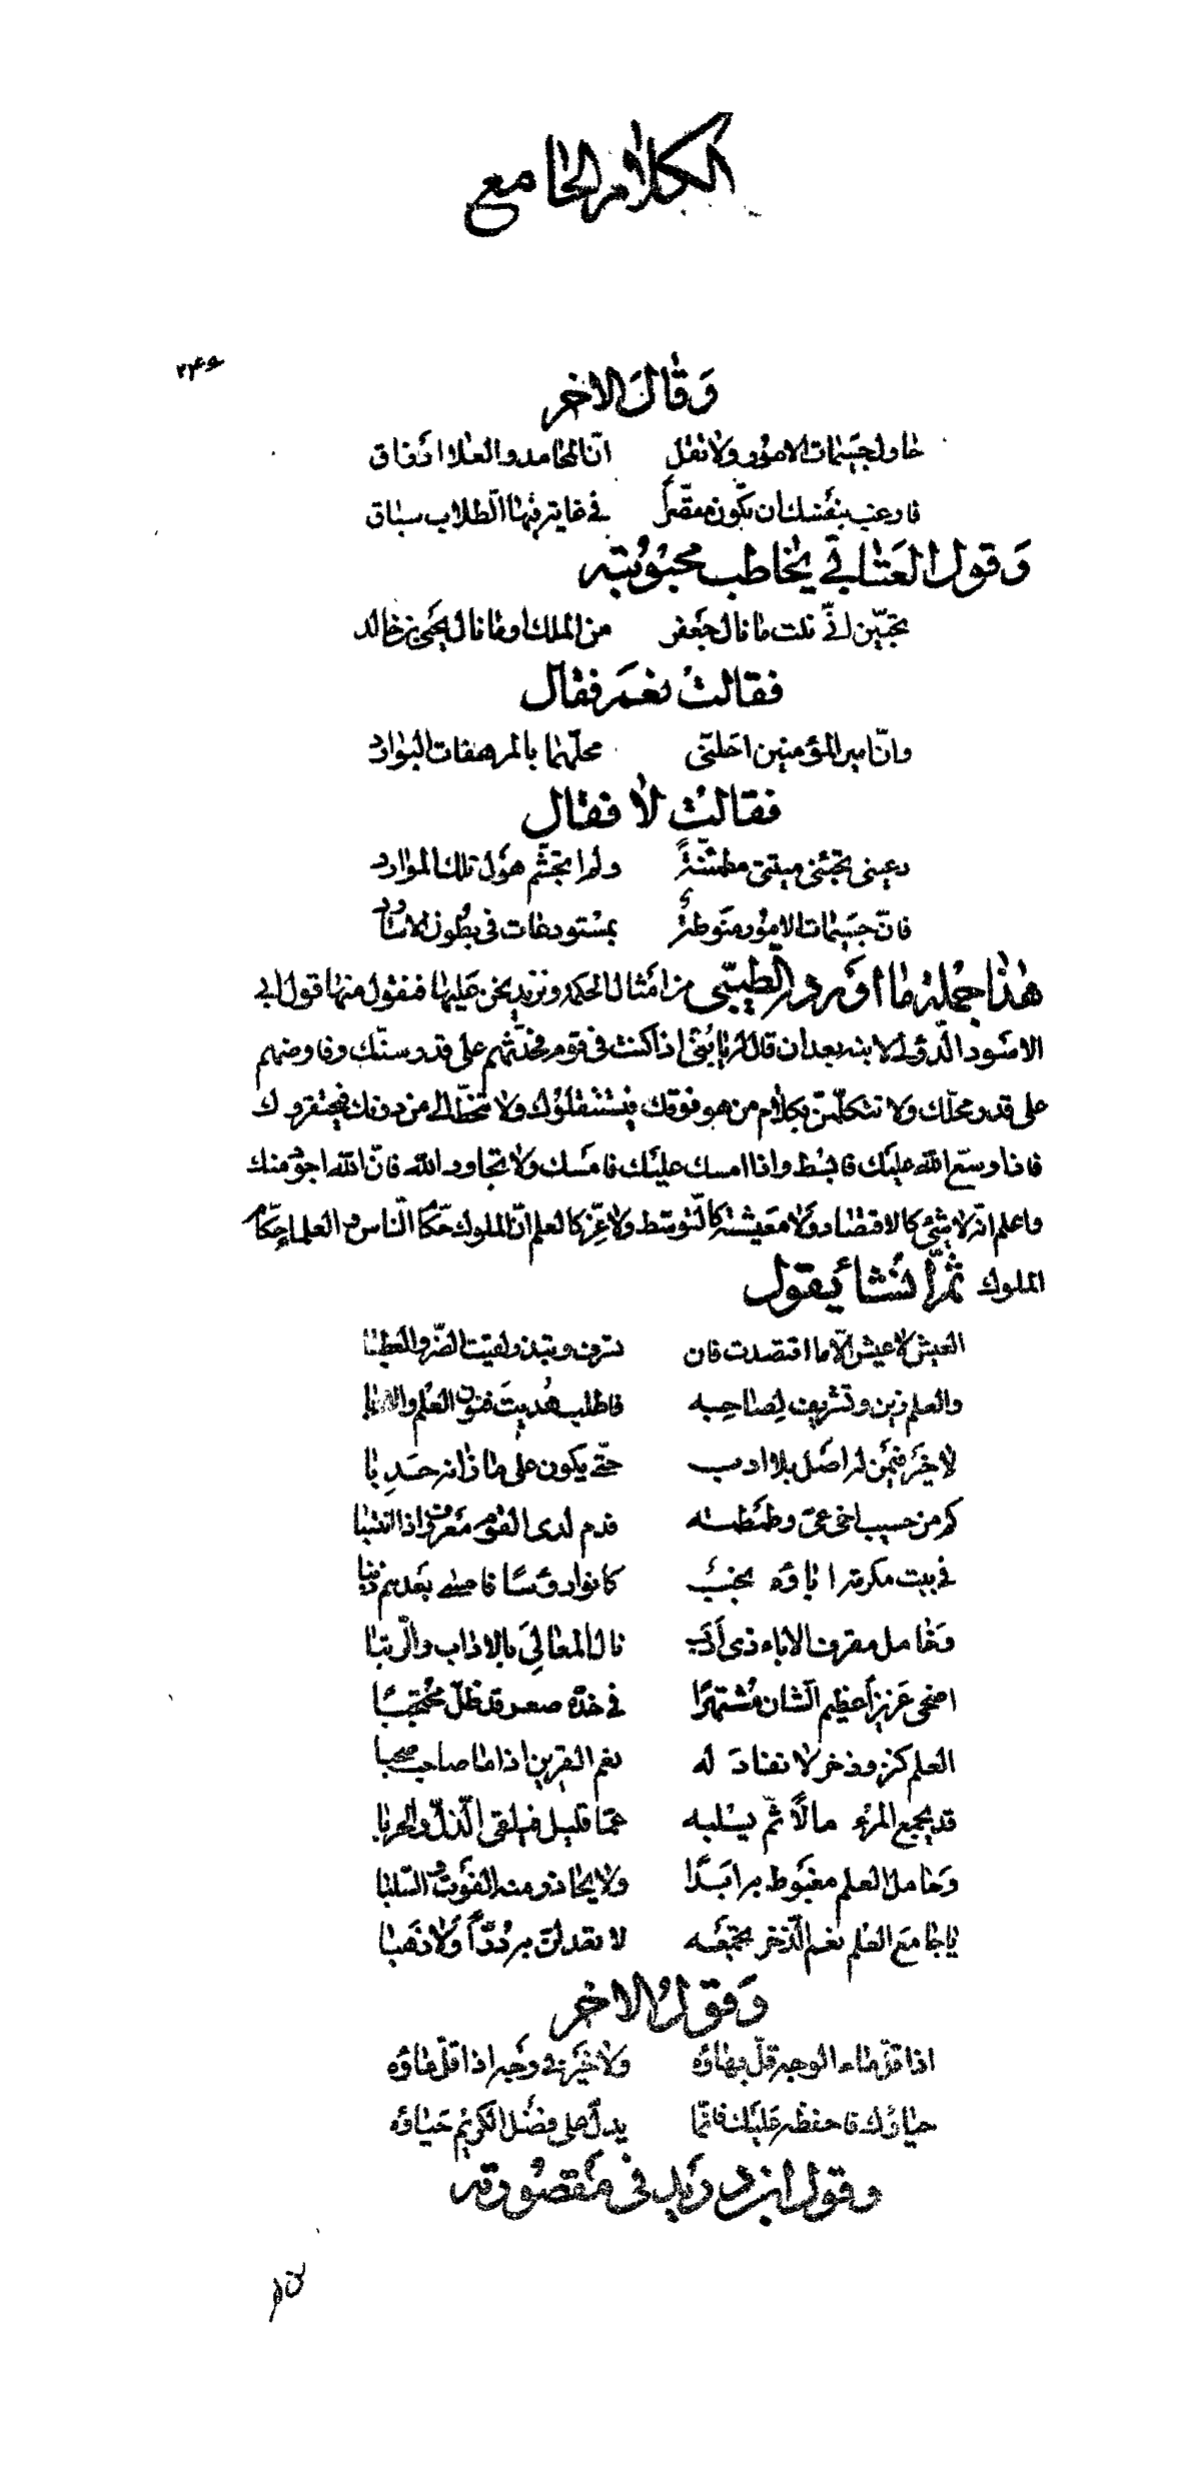 الكلام الجامع
۲۴۶
وَقالَ الاخر
حاول جَسيمات الامور ولا تقل    انّ المحامد والعلا ارزاق
فارغب بنفسك ان تكون مقصّراً    في غاية فيها الطّلاب سباق
وَقول العَتابي يخاطب محبوبته
تحبّين انّي نلت ما نال جَعفر    من الملك او ما نال يحيى بن خالد
فقالت نعم فقال
وانّ امير المؤمنين احلّني    محلّهما بالمرهفات البوارد
فقالت لا فقال
دعيني تجئني ميتتي مطمئنّةً    ولم اتجشّم هَول تلك الموارد
فانّ جَسيمات الامور منوطةٌ    بمستودعات في بطون الاساود
هٰذا جملة ما اورد الطيبّي من امثال الحكم ونزيد نحن عَليها فنقول منها قول ابي
الاسود الدّؤلي لابنه بعد ان قال له يا بُنيّ اذا كنت في قوم فحدّثهم على قدر سنّك وفاوضهم
على قدر محلّك ولا تتكلّمنّ بكلام من هو فوقك فيستثقلوك ولا تنحّط الى من دونك فيحتقروك
فاذا وسّع الله عليك فابسُط واذا امسك عليك فامسك ولا تجاود الله فانّ الله اجود منك
واعلم انّه لا شئ كالاقتصاد ولا مَعيشة كالتّوسّط ولا عزّ كالعلم انّ الملوك حكّام النّاس والعلماء حكّام
الملوك ثمّ انشأ يقول
العيش لا عيش الّا ما اقتصدت فان    تسرف وتبذر لقيت الضّر والعطبا
والعلم زين وتشريف لِصاحِبه    فاطلب هُديتَ فنون العلم والادبا
لا خيَر فيمَن له اصل بلا ادب    حتّى يكون على ما زانه حَدِبا
كم من حسيب اخى عىّ وطَمطمه    فدم لدى القوم مَعروف اذا انتسبا
في بيت مكرمة اباؤه نجبٌ    كانوا رؤسًا فامسى بعدهم ذنبا
وَخامل مقرف الاباء ذى اَدَب    نال المعالِىَ بالاداب والرّتبا
اضحى عَزيزاً عظيم الشّان مُشتهرًا    في خدّه صعر قد ظلّ محتجبًا
العلم كنز وذخر لا نفادَ له    نعم القرين اذا ما صاحب صحبا
قد يجمع المرءُ مالًا ثمّ يسلبه    عمّا قليل فيلقى الذّلّ والحربا
وَحامل العلم مغبوط به ابَدًا    ولا يحاذر منه الفَوت والسّلبا
يا جامعَ العلم نعم الذّخر تجمَعه    لا تعدلنّ به دُرّاً ولا ذَهبا
وَقول الاخر
اذا قلّ ماء الوجه قلّ بهاؤه    ولا خَير في وَجه اذا قلّ ماؤه
حياؤك فاحفظه عَليك فانّما    يدلّ على فضل الكريم حَياؤه
وقول ابن دريد في مَقصُورته